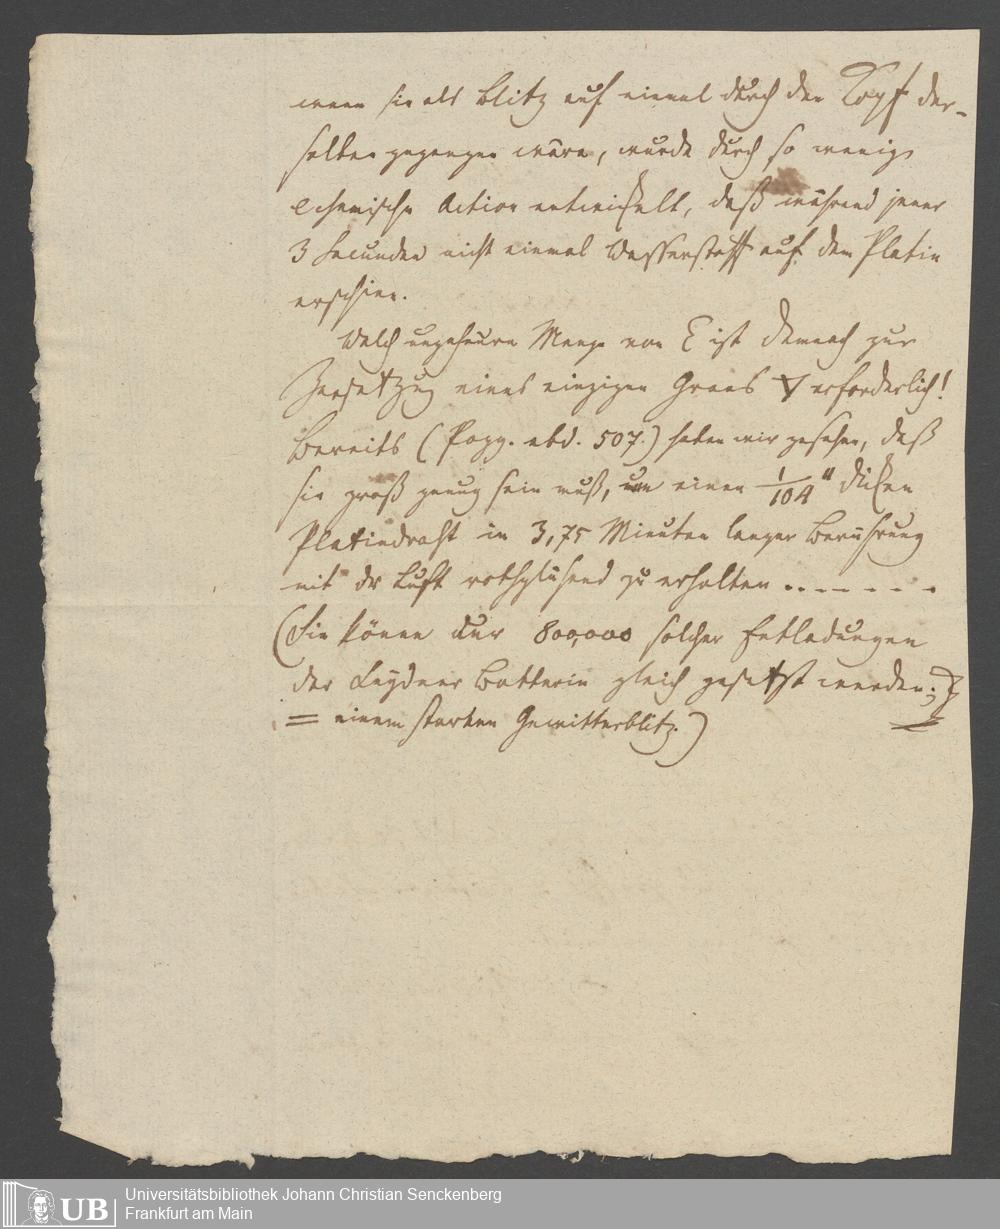 wenn sie als Blitz auf einmal durch den Kopf der-
selben gegangen wäre, wurde durch so wenig
chemische Action entwickelt, daß während jener
3 Secunden nicht einmal Wasserstoff auf dem Platin
erschien.
Welch ungeheure Menge von E ist demnach zur
Zersetzug eines einzigen Grans ▽ erforderlich!
Bereits (Pogg. ebd. 507.) haben wir gesehen, daß
sie groß genug sein muß, um einen 1/104" dicken
Platindraht in 3,75 Minuten langer Berührung
mit dr Luft rothglühend zu erhalten . . . . . . .
(Sie könne nur 800,000 solcher Entladungen
der Leydner Batterie gleich gesetzt werden;
= einem starken Gewitterblitz.)
UB
Universitätsbibliothek Johann Christian Senckenberg
Frankfurt am Main